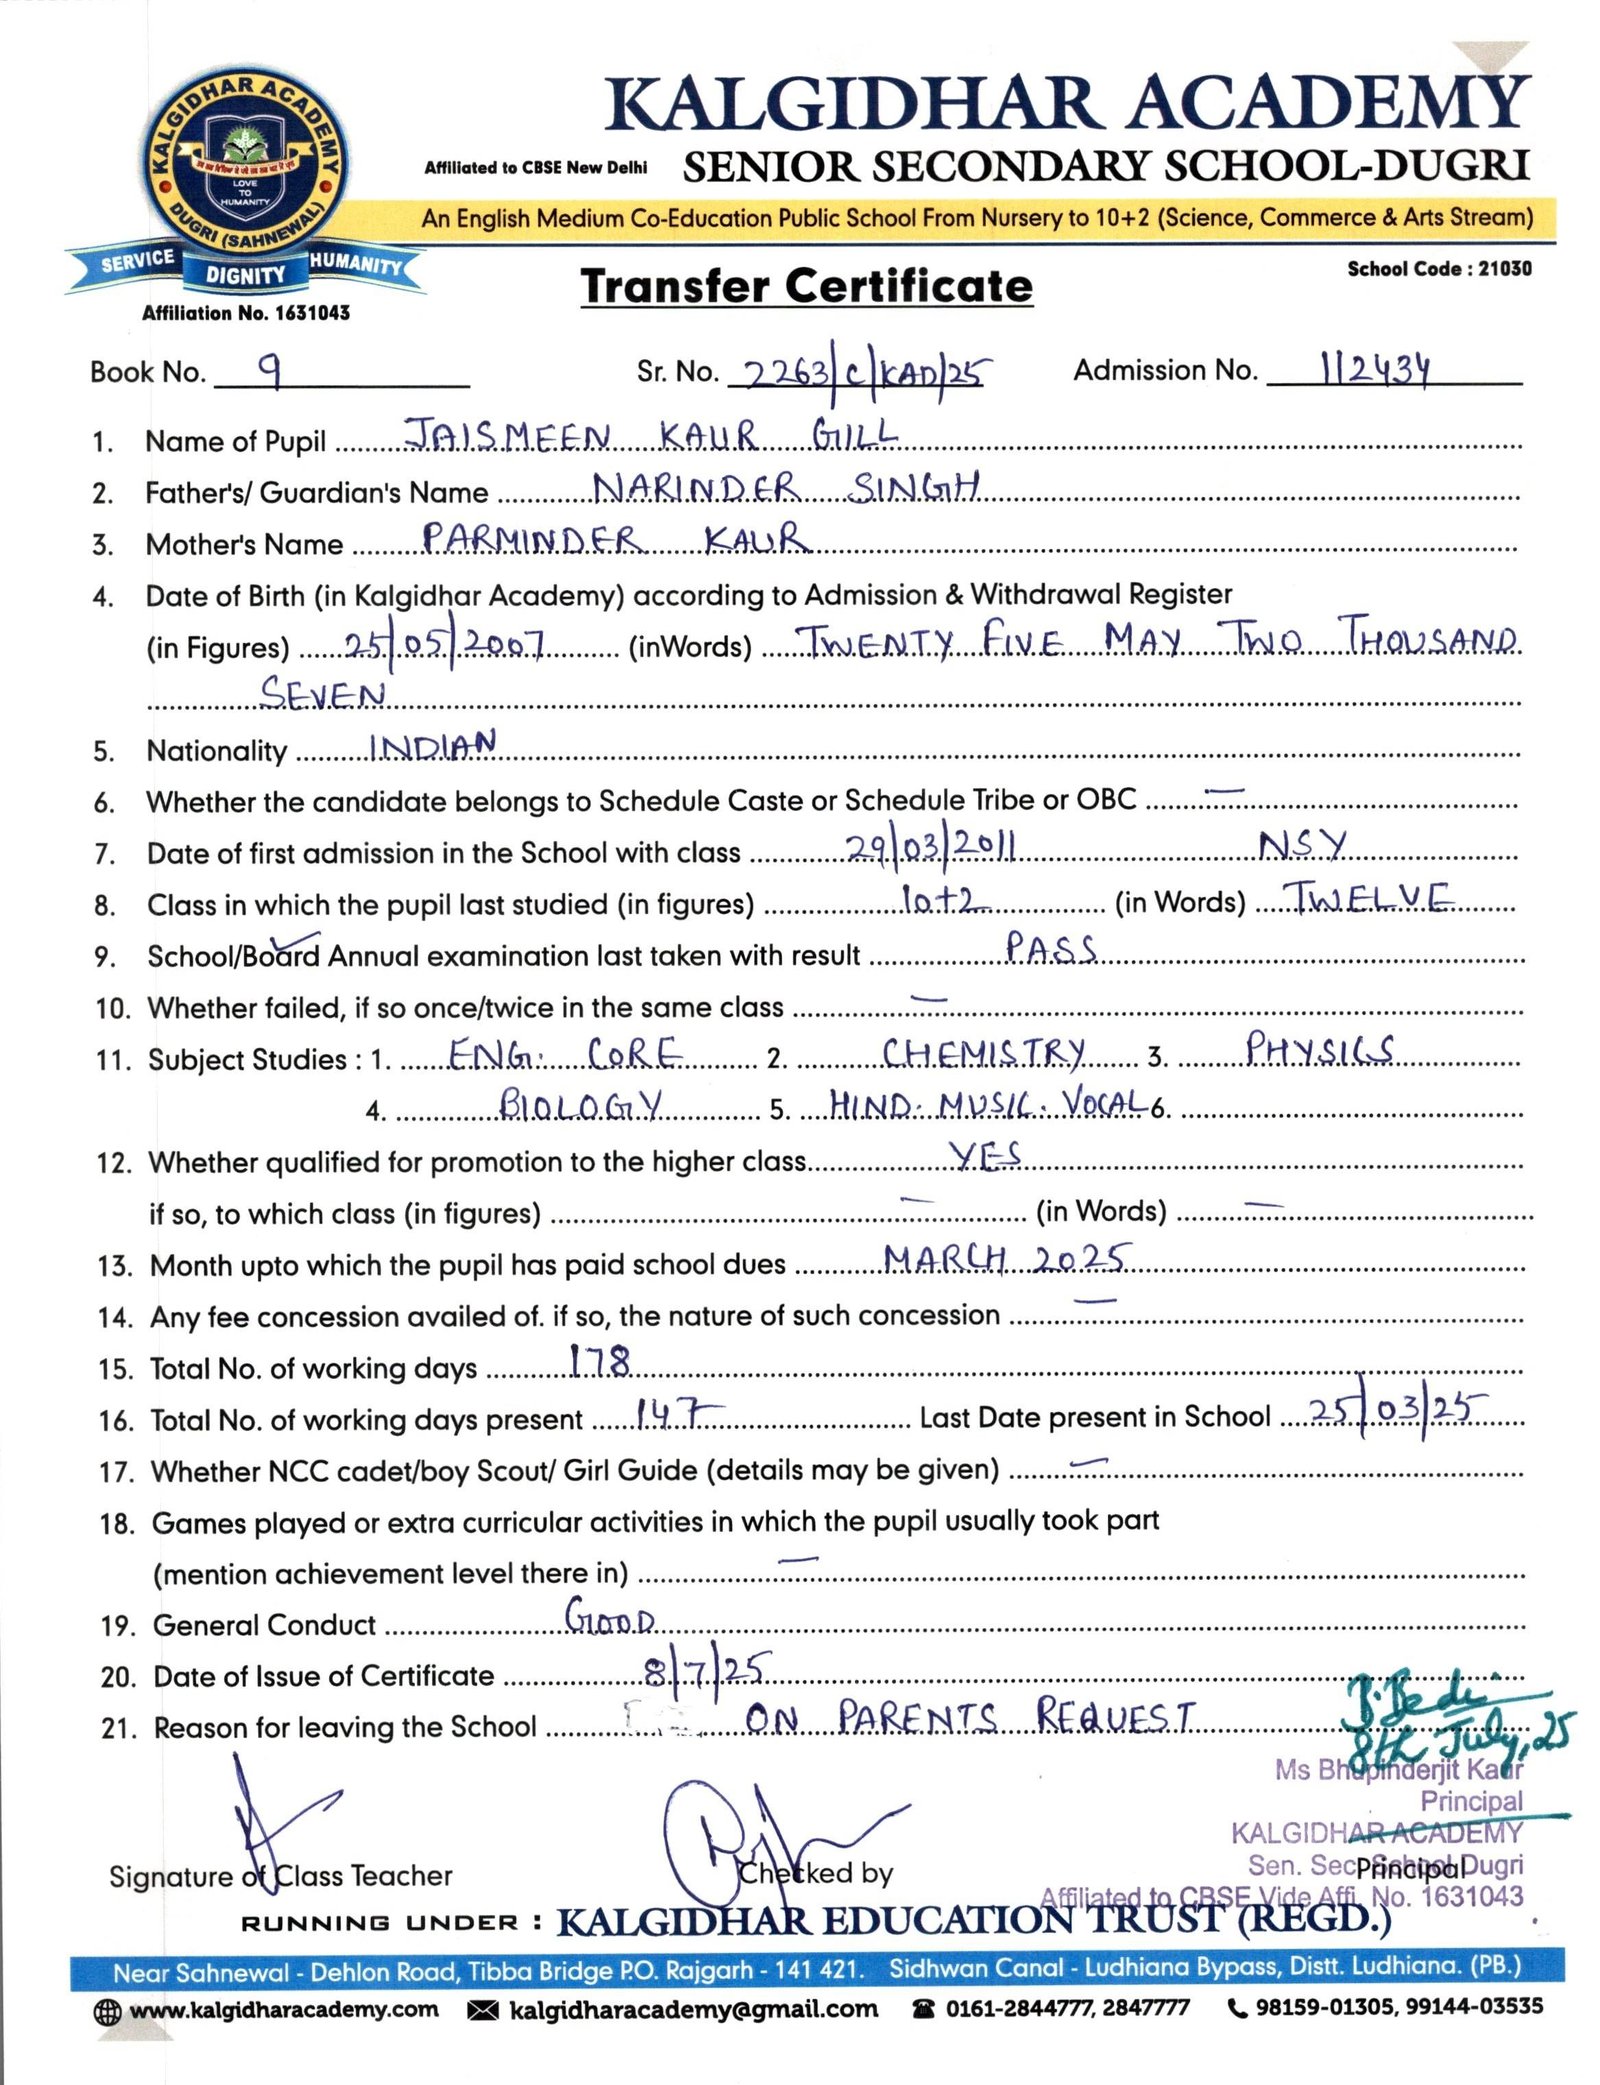 KALGIDHAR ACADEMY
DUGRI (SAHNEWAL)
LOVE
TO
HUMANITY
SERVICE DIGNITY HUMANITY
Affiliation No. 1631043
KALGIDHAR ACADEMY
Affiliated to CBSE New Delhi SENIOR SECONDARY SCHOOL-DUGRI
An English Medium Co-Education Public School From Nursery to 10+2 (Science, Commerce & Arts Stream)
School Code : 21030
Transfer Certificate
Book No. 9 Sr. No. 2263/C/KAD/25 Admission No. 112434
1. Name of Pupil JAISMEEN KAUR GILL
2. Father's/ Guardian's Name NARINDER SINGH
3. Mother's Name PARMINDER KAUR
4. Date of Birth (in Kalgidhar Academy) according to Admission & Withdrawal Register
(in Figures) 25/05/2007 (inWords) TWENTY FIVE MAY TWO THOUSAND
SEVEN
5. Nationality INDIAN
6. Whether the candidate belongs to Schedule Caste or Schedule Tribe or OBC —
7. Date of first admission in the School with class 29/03/2011 NSY
8. Class in which the pupil last studied (in figures) 10+2 (in Words) TWELVE
9. School/Board Annual examination last taken with result PASS
10. Whether failed, if so once/twice in the same class —
11. Subject Studies : 1. ENG. CORE 2. CHEMISTRY 3. PHYSICS
4. BIOLOGY 5. HIND. MUSIC. VOCAL 6.
12. Whether qualified for promotion to the higher class YES
if so, to which class (in figures) — (in Words) —
13. Month upto which the pupil has paid school dues MARCH 2025
14. Any fee concession availed of. if so, the nature of such concession —
15. Total No. of working days 178
16. Total No. of working days present 147 Last Date present in School 25/03/25
17. Whether NCC cadet/boy Scout/ Girl Guide (details may be given) —
18. Games played or extra curricular activities in which the pupil usually took part
(mention achievement level there in) —
19. General Conduct GOOD
20. Date of Issue of Certificate 8/7/25
21. Reason for leaving the School ON PARENTS REQUEST
B. Bedi
8th July, 25
Ms Bhupinderjit Kaur
Principal
KALGIDHAR ACADEMY
Sen. Sec. School Dugri
Affiliated to CBSE Vide Affi. No. 1631043
Signature of Class Teacher Checked by Principal
RUNNING UNDER : KALGIDHAR EDUCATION TRUST (REGD.)
Near Sahnewal - Dehlon Road, Tibba Bridge P.O. Rajgarh - 141 421. Sidhwan Canal - Ludhiana Bypass, Distt. Ludhiana. (PB.)
www.kalgidharacademy.com kalgidharacademy@gmail.com 0161-2844777, 2847777 98159-01305, 99144-03535